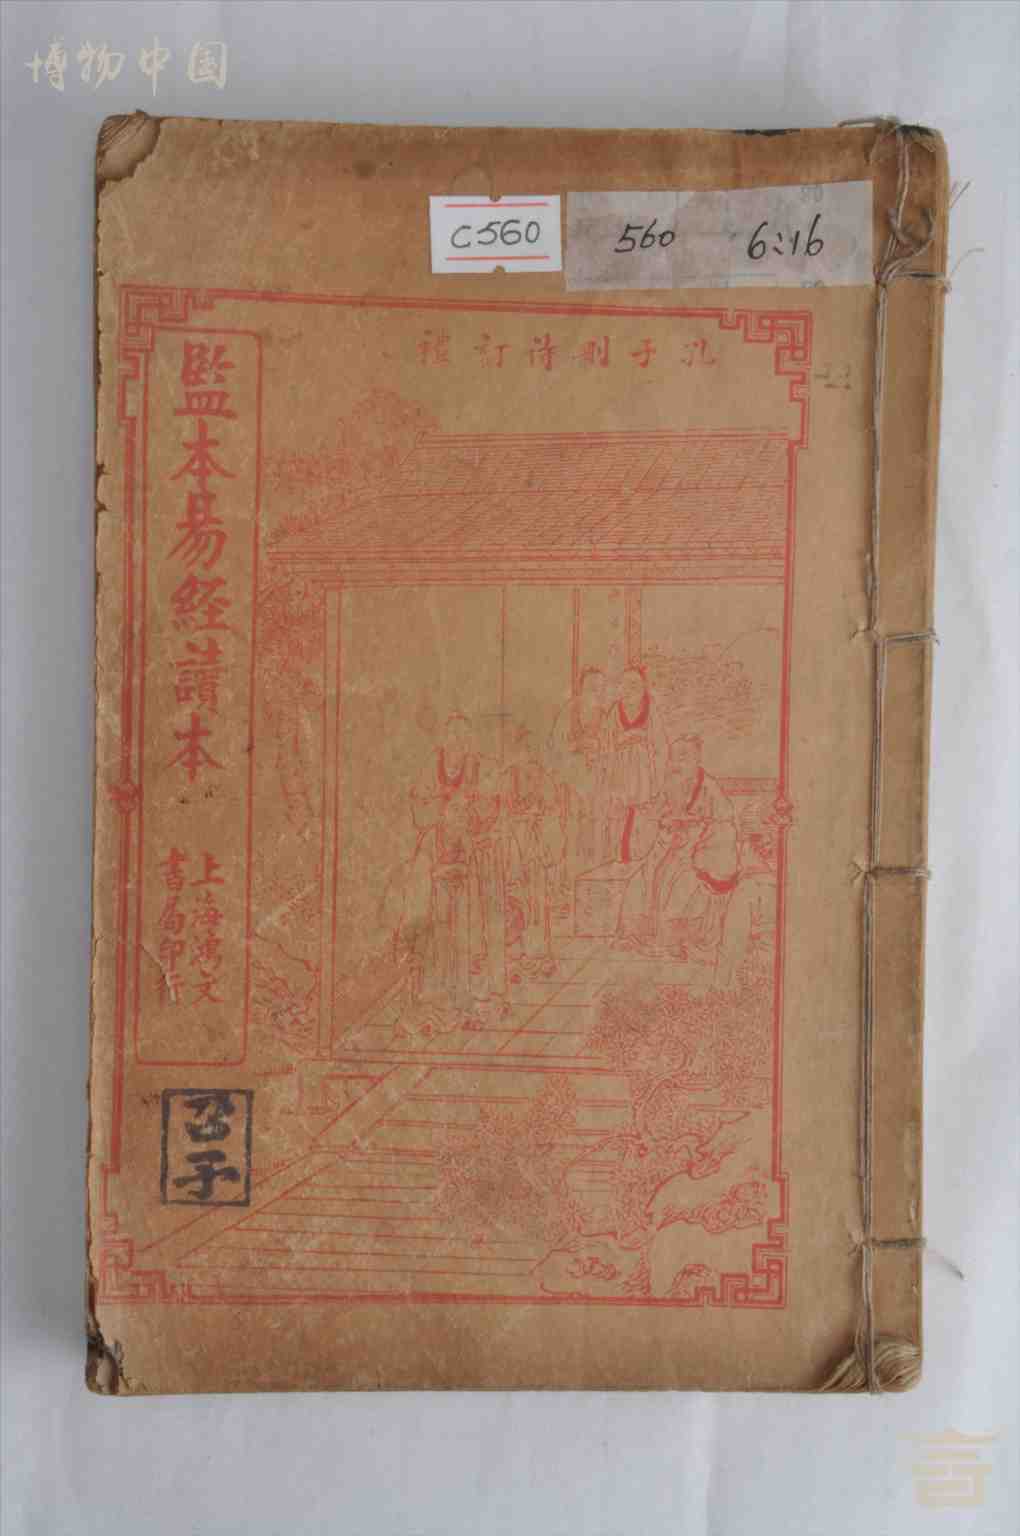 博物中国
C560
560 6:16
孔子刪诗訂禮
監本易経讀本
上海鴻文
書局印行